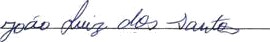 João Luiz dos Santos